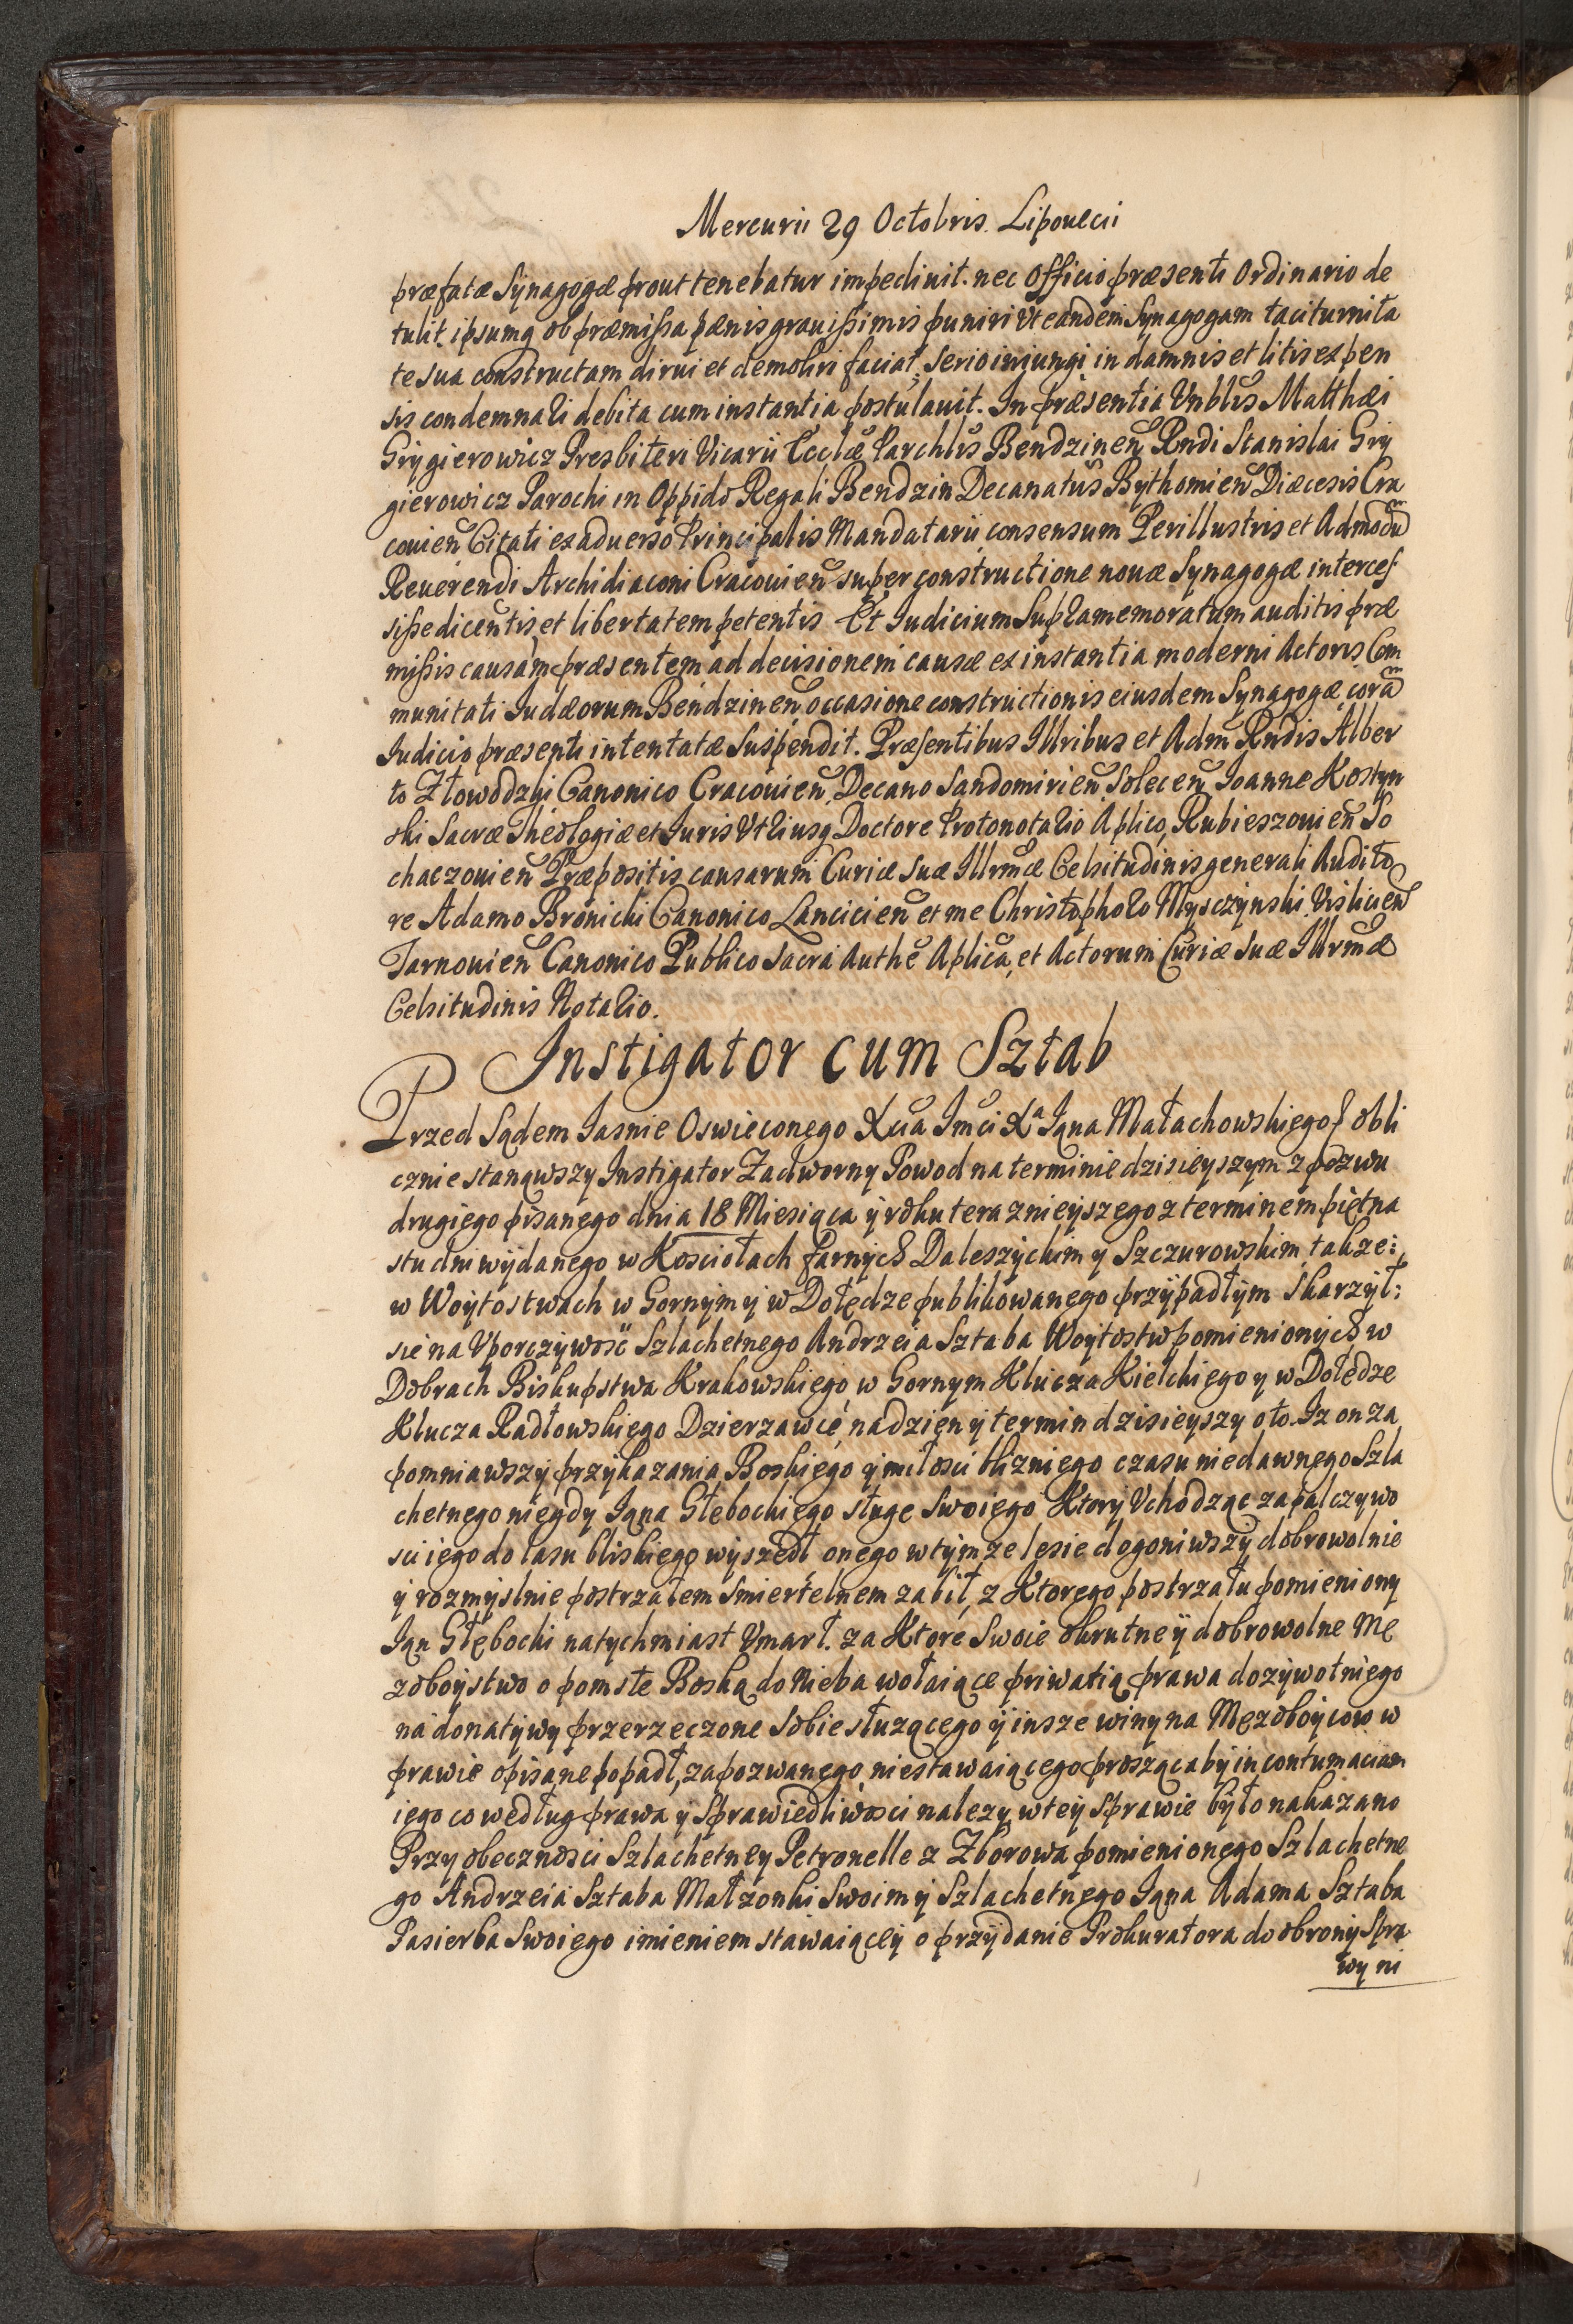 Mercurii 29 Octobris. Lipouecii
præfatæ Synagogæ prout tenebatur impediuit. nec Officio præsenti Ordinario de
tulit ipsumq ob præmissa pænis grauissimis puniri Vt eandem Synagogam taciturnita
te sua constructam dirui et demoliri faciat, serio iniungi in damnis et litis expen
sis condemnari debita cum instantia postulauit. In præsentia Vnblis Matthæi
Grygierowicz Presbiteri Vicarii Ecclæ Parchlis Bendzinen Rndi Stanislai Gry
gierowicz Parochi in Oppido Regali Bendzin Decanatus Bythomien Diæcesis Cra
couien Citati ex aduerso Principalis Mandatarii consensum Perillustris et Admodu
Reuerendi Archidiaconi Cracouien super constructione nouæ Synagogæ interces
sisse dicentis, et libertatem petentis Et Iudicium Supramemoratum auditis præ
missis causam præsentem ad decisionem causæ ex instantia moderni Actoris Com
munitati Iudæorum Bendzinen occasione constructionis eiusdem Synagogæ cora
Iudicio præsenti intentatæ Suspendit. Præsentibus Illribus et Adm Rndis Alber
to Złowodzki Canonico Cracouien, Decano Sandomirien Solecen Ioanne Kostyn
ski Sacræ Theologiæ et Iuris Vtriusq Doctore Protonotario Aplico, Rubieszouien So
chaczouien Præpositis causarum Curiæ Suæ Illrmæ Celsitudinis generali Audito
re Adamo Bronicki Canonico Lancicien et me Christophoro Myszczynski Vislicien
Tarnouien Canonico Publico Sacra Authe Aplica, et Actorum Curiæ Suæ Illrmæ
Celsitudinis Notario.
Instigator cum Sztab
Przed Sądem Iasnie Oswieconego Xcia Imci Xa Iana Małachowskiego obli
cznie stanąwszy Instigator Zadworny Powod na terminie dzisieyszym z pozwu
drugiego pisanego dnia 18 Miesiąca y roku teraznieyszego z terminem piętna
stu dni wydanego w Kosciołach farnych Daleszyckim y Szczurowskim, także
w Woytostwach w Gornym y w Dołędze publikowanego przypadłym skarzył
sie na Vporczywość Szlachetnego Andrzeia Sztaba Woytostw pomienionych w
Dobrach Biskupstwa Krakowskiego w Gornym Klucza Kielckiego y w Dołędze
Klucza Radłowskiego Dzierzawcę, na dzien y termin dzisieyszy oto. Iz on za
pomniawszy przykazania Boskiego y miłosci blizniego czasu niedawnego Szla
chetnego niegdy Iana Głębockiego sługe swoiego Ktory Vchodząc zapalczywo
sci iego do lasu bliskiego wyszedł onego w tymze lesie dogoniwszy dobrowolnie
y rozmyslnie postrzałem smiertelnem zabił, z Ktorego postrzału pomieniony
Ian Głębocki natychmiast Vmarł. za Ktore Swoie okrutne y dobrowolne Mę
zoboystwo o pomste Boską do Nieba wołaiące priwatią prawa dozywotniego
na donatywy przerzeczone sobie służącego y insze winy na Męzoboycow w
prawie opisane popadł, zapozwanego niestawaiącego prosząc aby in contumaciam
iego co według prawa y Sprawiedliwosci nalezy w tey Sprawie było nakazano
Przy obecznosci Szlachetney Petronelle z Zborowa pomienionego Szlachetne
go Andrzeia Sztaba Małzonki Swoim y Szlachetnego Iana Adama Sztaba
Pasierba Swoiego imieniem stawaiącey o przydanie Prokuratora do obrony Spra
wy ni